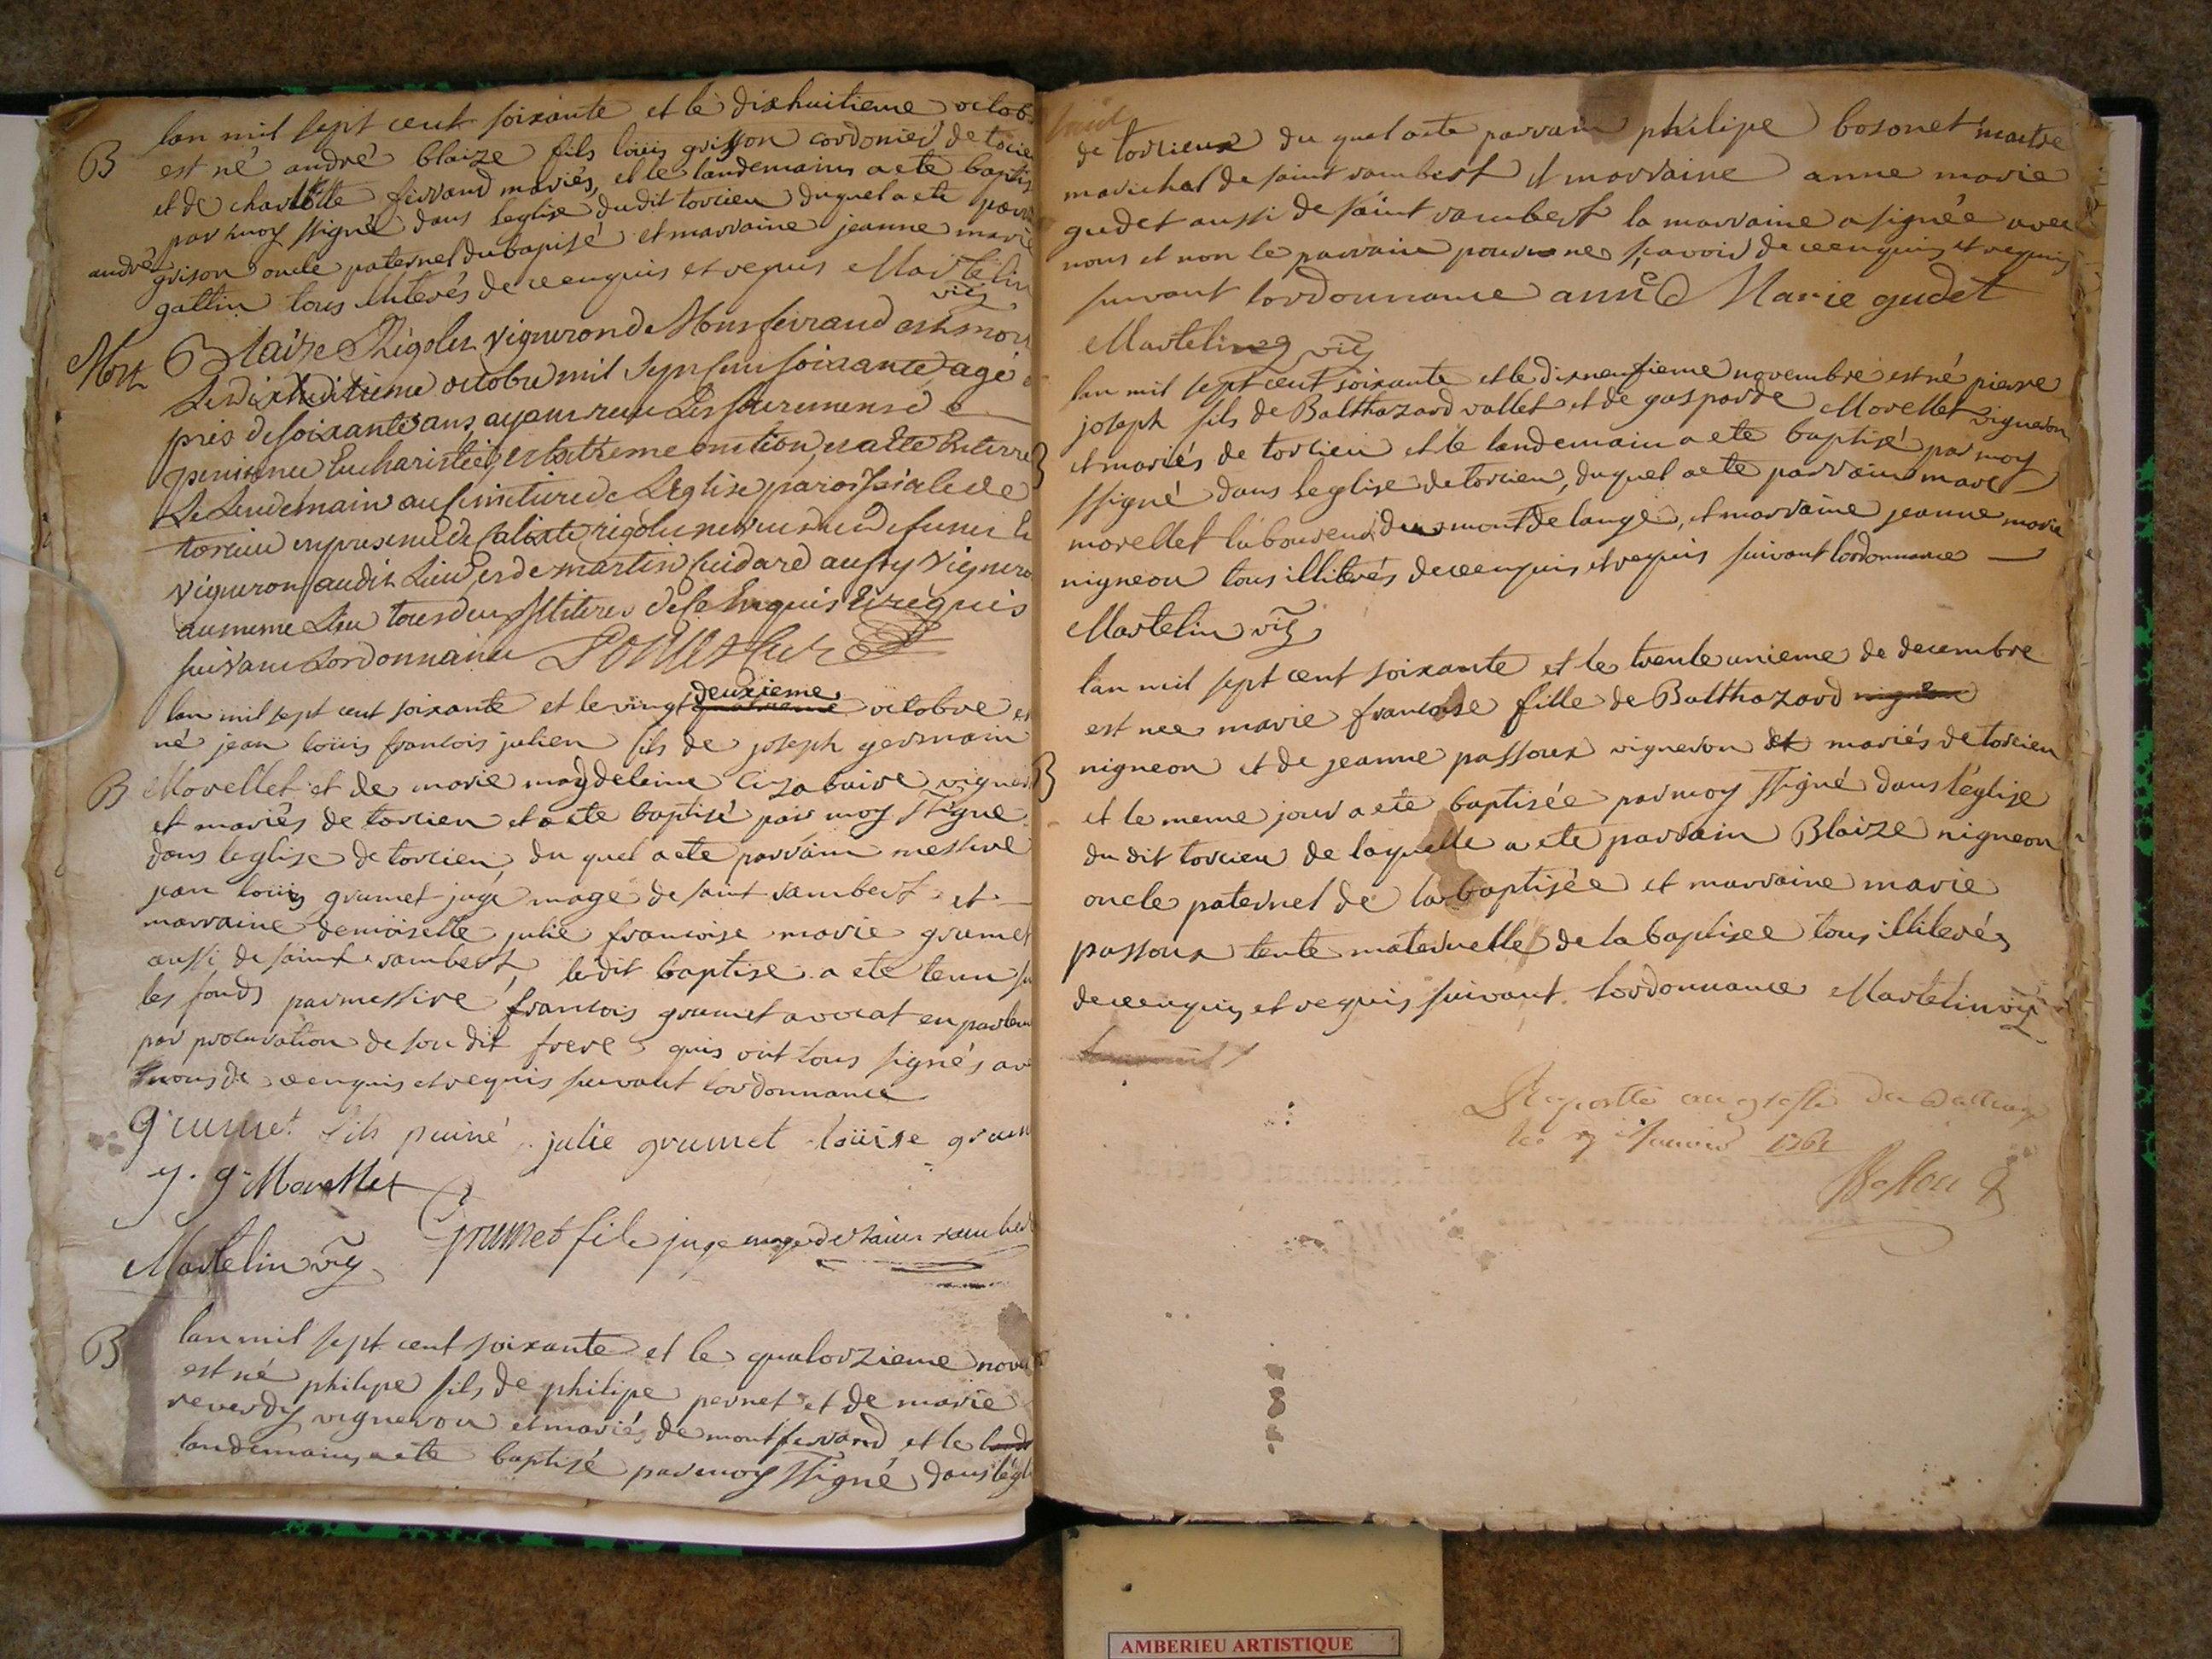 lan mil sept cent soixante et le dixhuitieme octob
B est né andré blaize fils loüis grisson cordonier de torcie
et de charlotte ferrand mariés, et le landemains a ete baptis
par moy ssigné dans leglise du dit torcieu duquel a ete parr
andré grison oncle paternel du bapisé et marraine jeanne marie
gattin tous illiterés de ce enquis et requis Martelin
vic
Mort Blaize Rigolet vigneron de Monferraud est mort
Le dixhuitieme octobre mil sept cent soixante agé
pres de soixante ans, ayant reçu Les sacremens de
penitence Eucharistie, et extreme onction, et a ete Enterré
Le Lendemain au cimetiere de Léglise paroissiale de
torcieu en presence de Calixte rigolet du defunt
vigneron audit Lieu et de martin Cuidard aussy vignero
au meme Lieu tous deux illiteres de ce Enquis et requis
suivant Lordonnance
lan mil sept cent soixante et le vingt deuxieme octobre es
né jean loüis francois julien fils de joseph germain
B Morellet et de marie magdeleine vigner
et mariés de torcieu et a ete baptisé par moy ssigné
dans leglise de torcieu, du quel a ete parrain messire
jean loüis grumet juge mage de saint rambert et
marraine demoiselle julie francoise marie grumet
aussi de saint rambert, ledit baptise a ete tenu su
les fonds par messire francois grumet avocat en parlem
par procuration de son dit frere quis ont tous signés av
nous de ce enquis et requis suivant lordonnance
grumet fils puiné julie grumet loüise grum
j. g Morellet
Grumet fils juge mage de saint rambert
Martelin vic
B lan mil sept cent soixante et le quatorzieme nove
est né philipe fils de philipe pernet et de marie
reverdy vigneron et mariés de montferrand et le
landemains a ete baptisé par moy ssigné dans légl
de torcieux du quel a ete parrain philipe bosonet maitre
marichal de saint rambert et marraine anne marie
gudet aussi de saint rambert la marraine a signée avec
nous et non le parrain pour ne sçavoir de ce enquis et requis
suivant lordonnance anne Marie gudet
Martelin vic
lan mil sept cent soixante et le dixneufieme novembre est né pierre
joseph fils de Balthazard vallet et de gasparde Morellet vigneron
B et mariés de torcieu et le landemain a ete baptisé par moy
ssigné dans leglise de torcieu, duquel a ete parrain marc
morellet laboureur du mont de lange, et marraine jeanne marie
nigneon tous illiterés de ce enquis et requis suivant lordonnance
Martelin vic
lan mil sept cent soixante et le trente unieme de decembre
est nee marie francoise fille de Balthazard
B nigneon et de jeanne passoux vigneron et mariés de torcieu
et le meme jour a eté baptisée par moy ssigné dans l'église
du dit torcieu de laquelle a ete parrain Blaize nigneon
oncle paternel de la baptisée et marraine marie
passoux tente maternelle de la baptisee tous illiterés
de ce enquis et requis suivant lordonnance Martelin vic
Raporté au greffe du Balliage
le Janvier 1761
AMBERIEU ARTISTIQUE